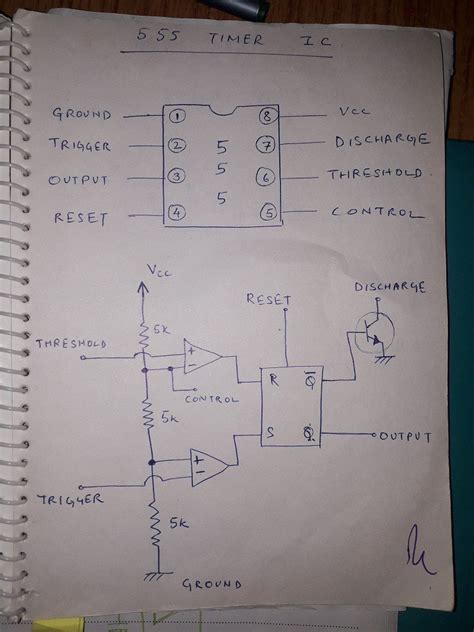 555 TIMER IC
GROUND 1 8 VCC
TRIGGER 2 5 7 DISCHARGE
OUTPUT 3 5 6 THRESHOLD
RESET 4 5 5 CONTROL
Vcc
DISCHARGE
RESET
5k
THRESHOLD
+
−
R Q̅
CONTROL
5k
S Q
OUTPUT
+
−
TRIGGER
5k
GROUND